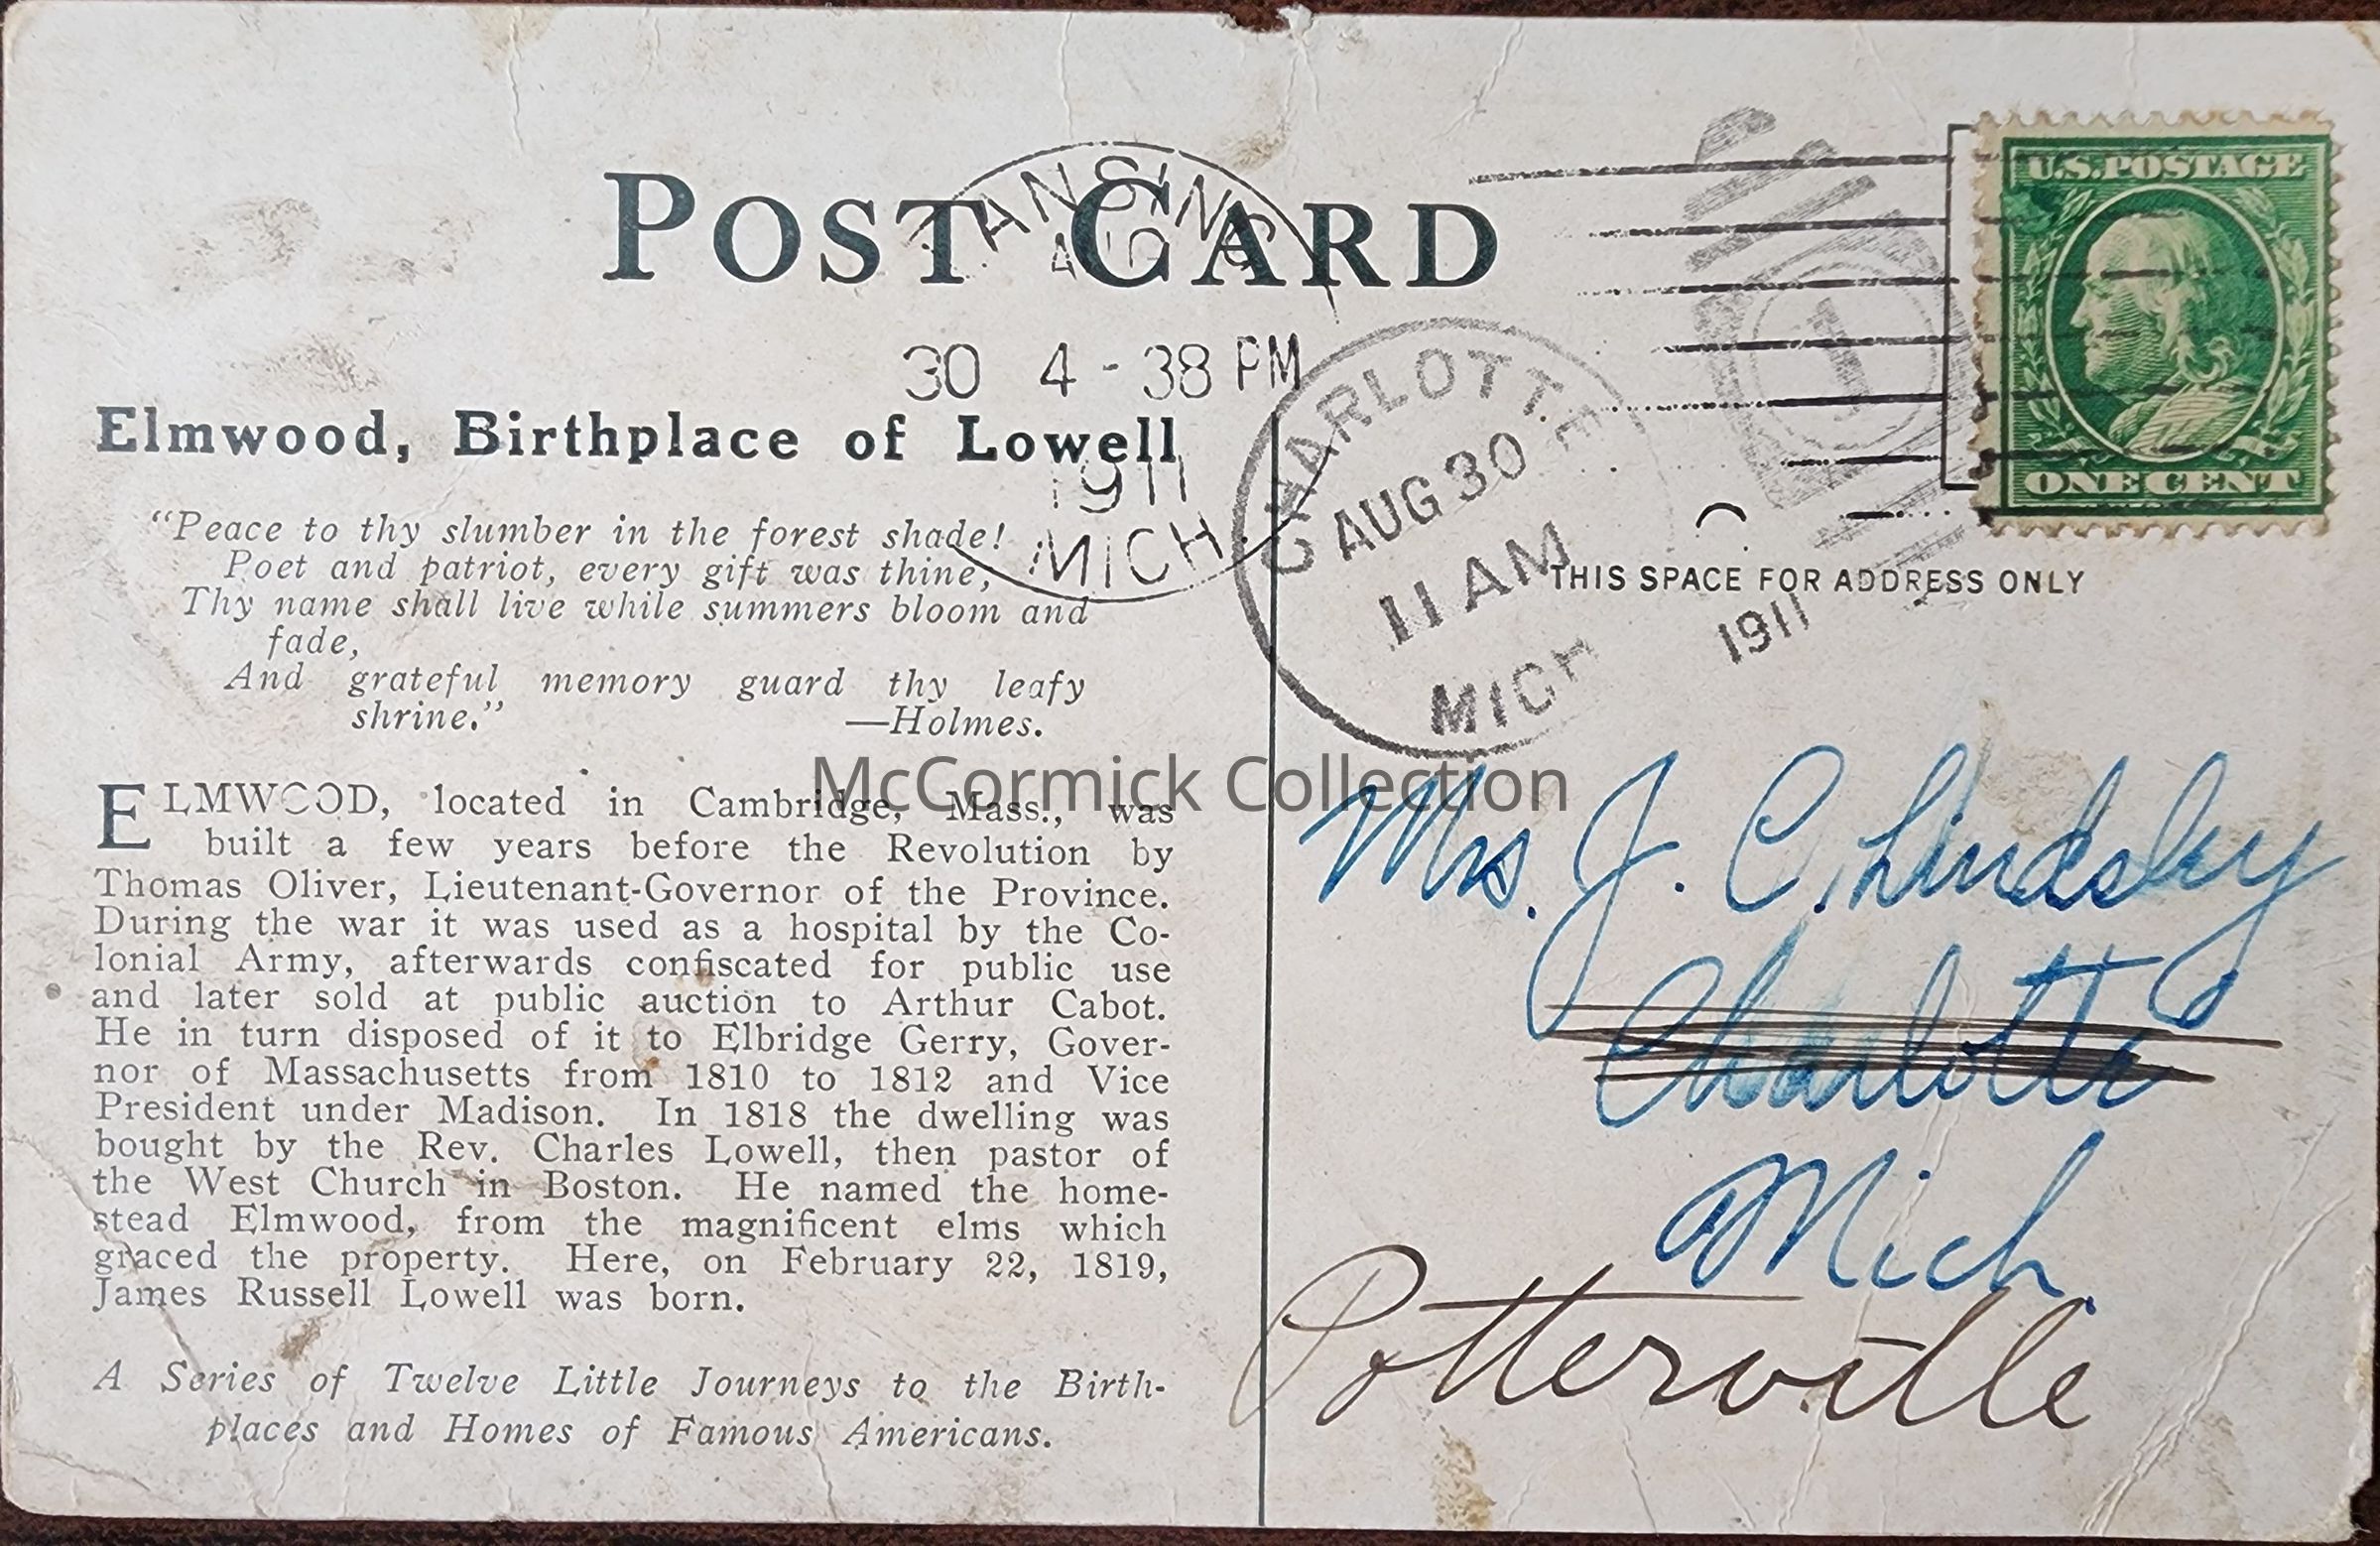 POST CARD
LANSING
AUG
30 4-38 PM
1911
MICH.
U.S. POSTAGE
ONE CENT
1
CHARLOTTE
AUG 30
11 AM
1911
MICH
THIS SPACE FOR ADDRESS ONLY
Elmwood, Birthplace of Lowell
“Peace to thy slumber in the forest shade!
Poet and patriot, every gift was thine,
Thy name shall live while summers bloom and
fade,
And grateful memory guard thy leafy
shrine.” —Holmes.
ELMWOOD, located in Cambridge, Mass., was
built a few years before the Revolution by
Thomas Oliver, Lieutenant-Governor of the Province.
During the war it was used as a hospital by the Co-
lonial Army, afterwards confiscated for public use
and later sold at public auction to Arthur Cabot.
He in turn disposed of it to Elbridge Gerry, Gover-
nor of Massachusetts from 1810 to 1812 and Vice
President under Madison. In 1818 the dwelling was
bought by the Rev. Charles Lowell, then pastor of
the West Church in Boston. He named the home-
stead Elmwood, from the magnificent elms which
graced the property. Here, on February 22, 1819,
James Russell Lowell was born.
A Series of Twelve Little Journeys to the Birth-
places and Homes of Famous Americans.
McCormick Collection
Mrs. J. C. Lindsley
Charlotte
Mich.
Potterville